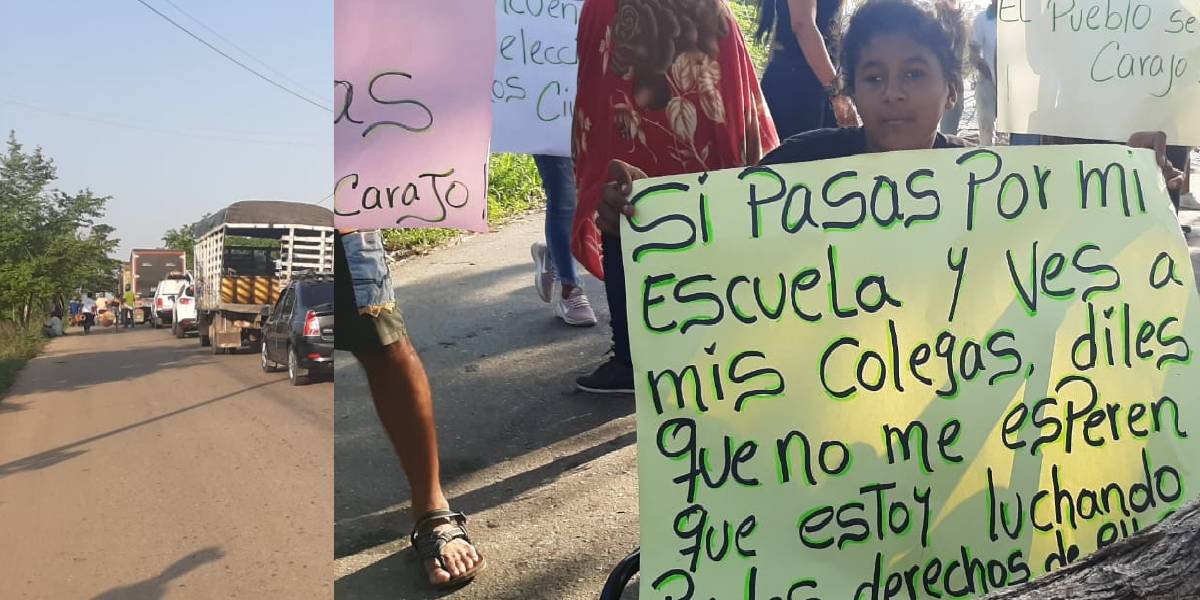 as
Carajo
elecc
os Ciu
El Pueblo se
Carajo
Si Pasas Por mi
Escuela y ves a
mis colegas, diles
que no me esperen
que estoy luchando
Por los derechos de